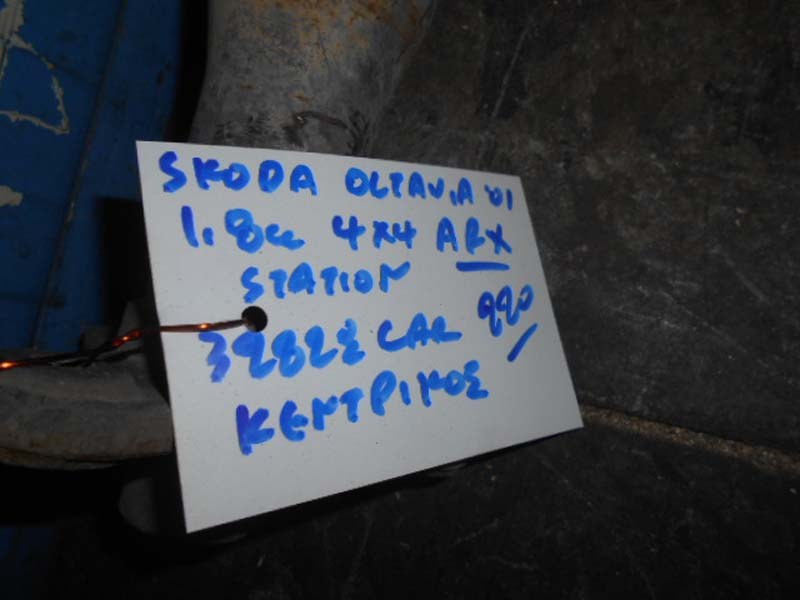 SKODA OCTAVIA '01
1.8cc 4x4 ARX
STATION
220
ΚΕΝΤΡΙΚΟΣ